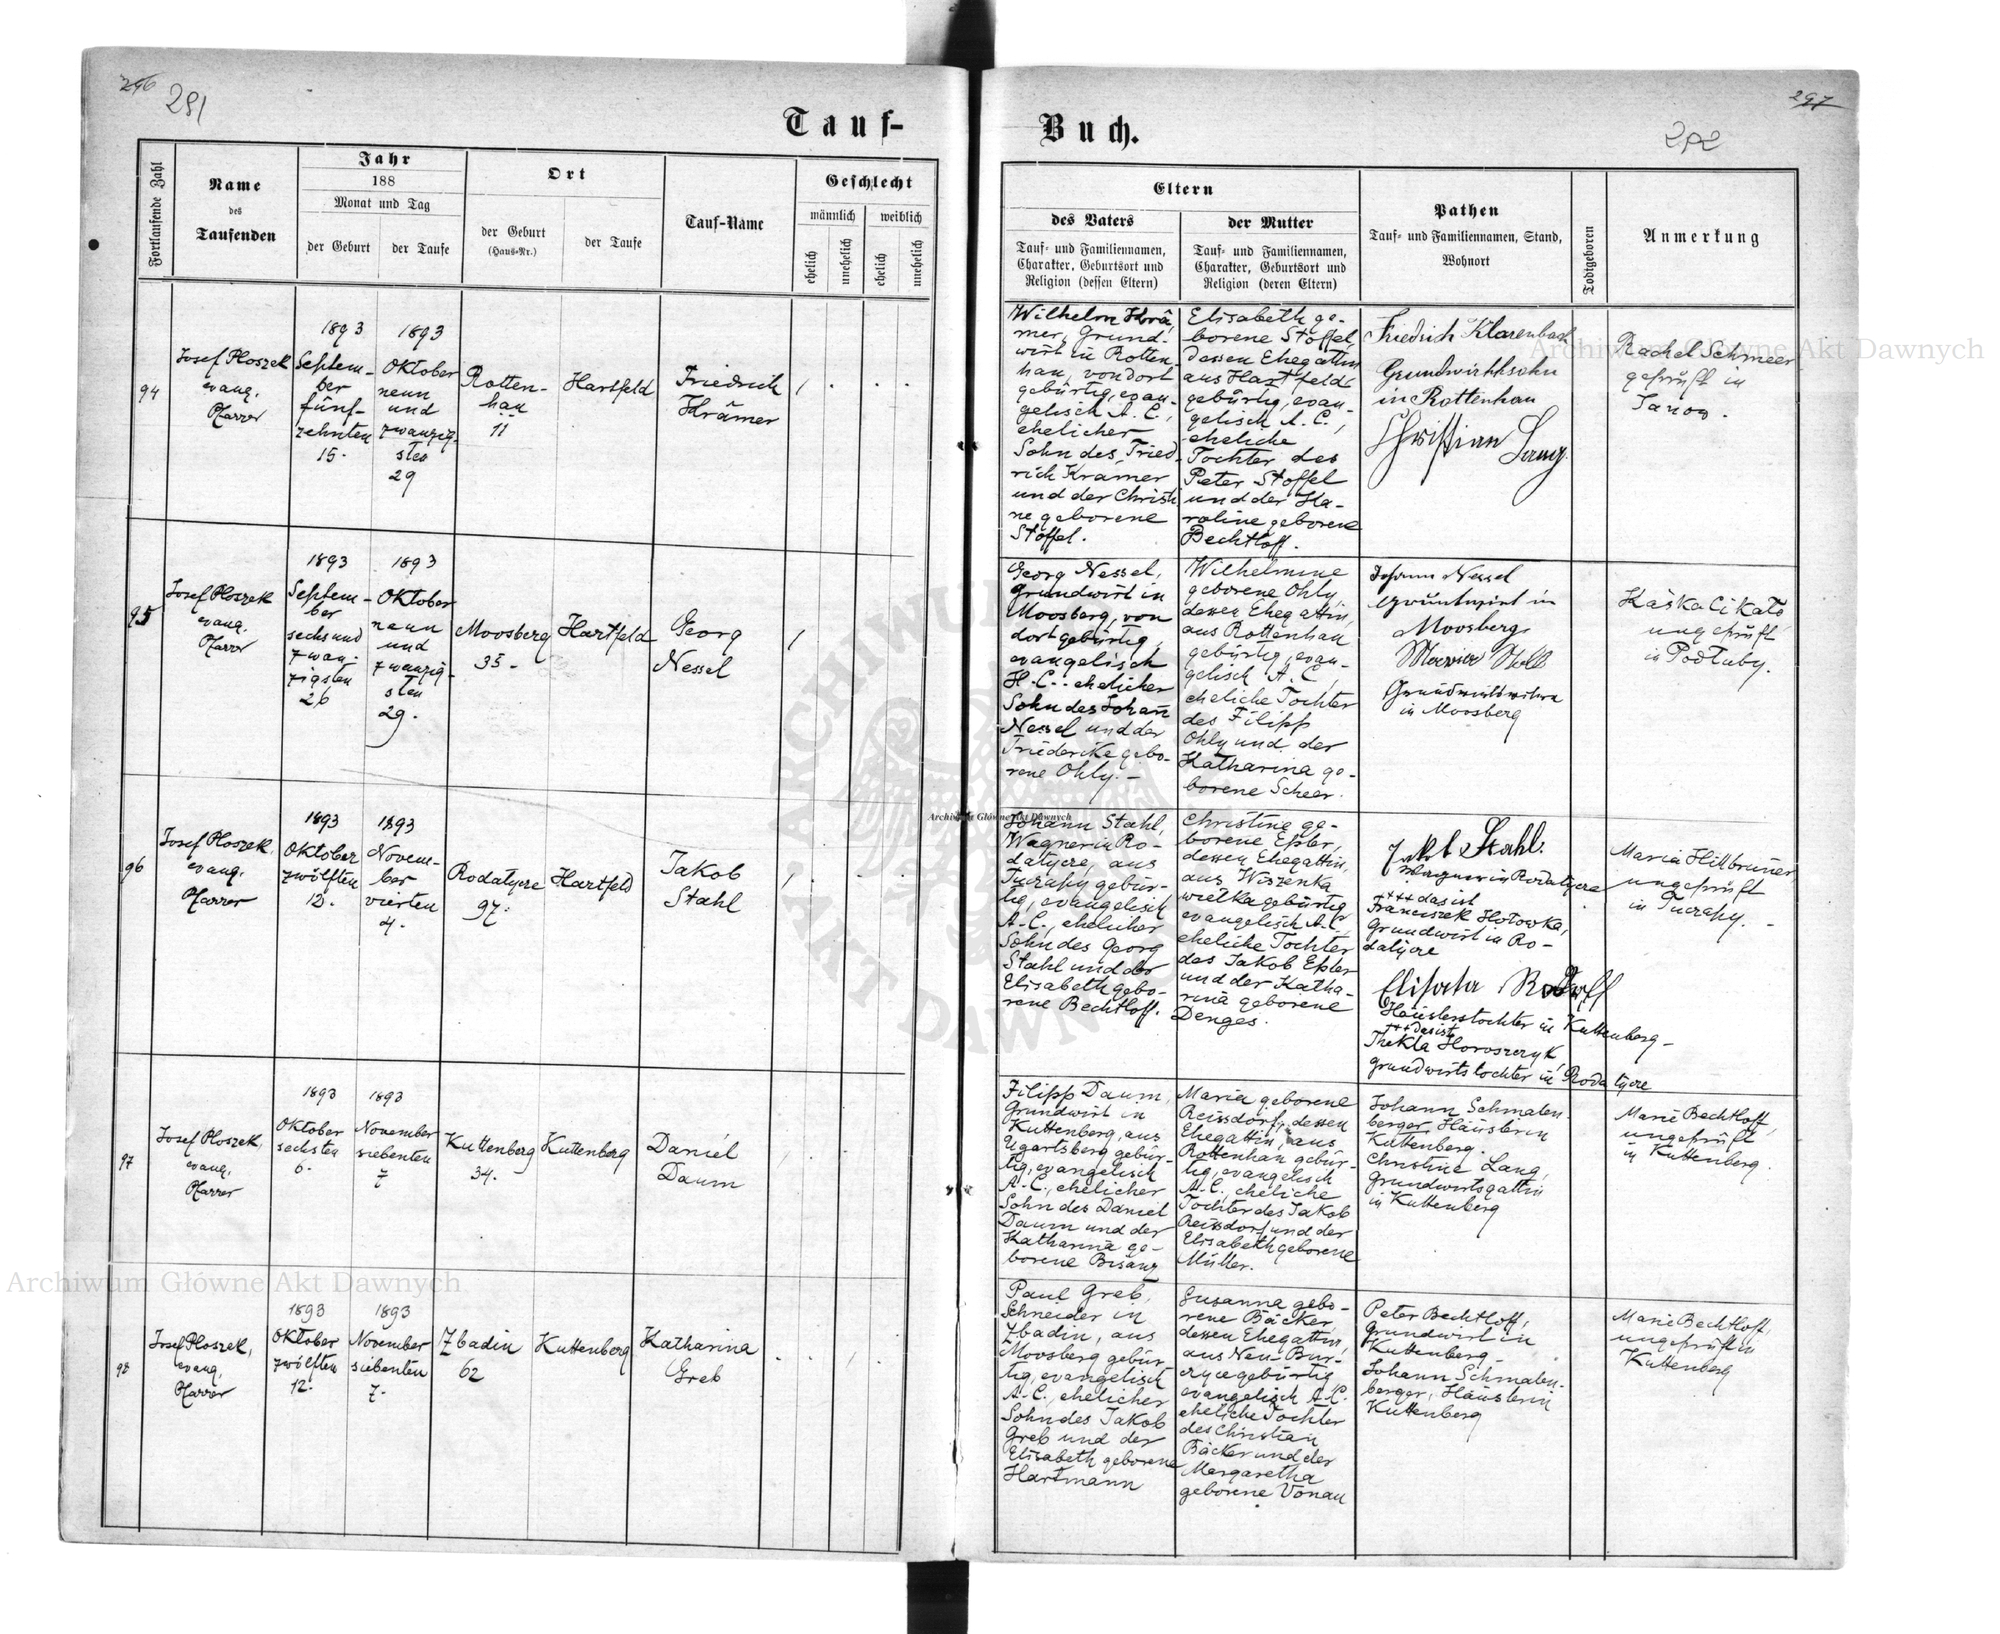 296
291
297
Tauf-
Buch.
Fortlaufende Zahl
Name
des
Taufenden
Jahr
188
Monat und Tag
der Geburt
der Taufe
Ort
der Geburt
(Haus-Nr.)
der Taufe
Tauf-Name
Geschlecht
männlich
weiblich
ehelich
unehelich
ehelich
unehelich
Eltern
des Vaters
Tauf- und Familiennamen,
Charakter, Geburtsort und
Religion (dessen Eltern)
der Mutter
Tauf- und Familiennamen,
Charakter, Geburtsort und
Religion (deren Eltern)
Pathen
Tauf- und Familiennamen, Stand,
Wohnort
Todtgeboren
Anmerkung
94
Josef Ploszek
evang.
Pfarrer
1893
Septem-
ber
fünf-
zehnten
15.
1893
Oktober
neun
und
zwanzig-
sten
29
Rotten-
han
11
Hartfeld
Friedrich
Krämer
Wilhelm Krä-
mer, Grund-
wirt in Rotten
han, von dort
gebürtig, evan-
gelisch A. C.,
ehelicher
Sohn des Fried-
rich Krämer
und der Christi
ne geborene
Stoffel.
Elisabeth ge-
borene Stoffel,
dessen Ehegattin
aus Hartfeld
gebürtig, evan-
gelisch A. C.,
eheliche
Tochter des
Peter Stoffel
und der Ka-
roline geborene
Bechtloff.
Friedrich Klarenbach
Grundwirthsohn
in Rottenhan
Christian Lang.
Rachel Schmeer
geprüft in
Janow.
95
Josef Ploszek
evang.
Pfarrer
1893
Septem-
ber
sechs und
zwan-
zigsten
26
1893
Oktober
neun
und
zwanzig-
sten
29.
Moosberg
35.
Hartfeld
Georg
Nessel
Georg Nessel,
Grundwirt in
Moosberg, von
dort gebürtig,
evangelisch
H. C. ehelicher
Sohn des Johann
Nessel und der
Friederike gebo-
rene Ohly.-
Wilhelmine
geborene Ohly
dessen Ehegattin,
aus Rottenhan
gebürtig, evan-
gelisch A. C,
eheliche Tochter
des Filipp
Ohly und der
Katharina ge-
borene Scheer.
Johann Nessel
Grundwirt in
Moosberg
in Moosberg
ungeprüft
96
Josef Ploszek,
evang.
Pfarrer
1893
Oktober
zwölften
12.
1893
Novem-
ber
vierten
4.
Rodatycze
97.
Hartfeld
Jakob
Stahl
Johann Stahl,
Wagner in Ro-
datycze, aus
Tuczapy gebür-
tig, evangelisch
A. C., ehelicher
Sohn des Georg
Stahl und der
Elisabeth gebo-
rene Bechtloff.
Christine ge-
borene Epler,
dessen Ehegattin,
aus Wiszenka
wielka gebürtig
evangelisch A. C,
eheliche Tochter
des Jakob Epler
und der Katha-
rina geborene
Denges.
Jakob Stahl.
Wagner in Rodatycze
+++ das ist
Franciszek Hotowka,
Grundwirt in Ro-
datycze
Häuslerstochter in Kuttenberg-
+++ das ist
Thekla Horoszczyk,
Grundwirtstochter in Rodatycze
Maria Hillbruner
ungeprüft
in Tuczapy.-
97
Josef Ploszek,
evang.
Pfarrer
1893
Oktober
sechsten
6.
1893
November
siebenten
7
Kuttenberg
34.
Kuttenberg
Daniel
Daum
Filipp Daum,
Grundwirt in
Kuttenberg, aus
Ugartsberg gebür-
tig, evangelisch
A. C., ehelicher
Sohn des Daniel
Daum und der
Katharina ge-
borene Bisanz
Maria geborene
Reissdorf, dessen
Ehegattin, aus
Rottenhan gebür-
tig, evangelisch
A. C., eheliche
Tochter des Jakob
Reissdorf und der
Elisabeth geborene
Müller.
Johann Schmalen-
berger, Häusler in
Kuttenberg.
Christine Lang,
Grundwirtsgattin
in Kuttenberg
Marie Bechtloff,
ungeprüft
in Kuttenberg.
98
Josef Ploszek,
evang.
Pfarrer
1893
Oktober
zwölften
12.
1893
November
siebenten
7.
Zbadin
62
Kuttenberg
Katharina
Greb
Paul Greb,
Schneider in
Zbadin, aus
Moosberg gebür-
tig, evangelisch
A. C. ehelicher
Sohn des Jakob
Greb und der
Elisabeth geborene
Hartmann
Susanna gebo-
rene Bäcker
dessen Ehegattin,
aus Neu-Bur-
czyce gebürtig
evangelisch A. C.
eheliche Tochter
des Christian
Bäcker und der
Margaretha
geborene Vonau
Peter Bechtloff,
Grundwirt in
Kuttenberg-
Johann Schmalen-
berger, Häusler in
Kuttenberg
Marie Bechtloff,
ungeprüft in
Kuttenberg
Archiwum Główne Akt Dawnych
Archiwum Główne Akt Dawnych
Archiwum Główne Akt Dawnych
ARCHIWUM
AKT DAWNYCH